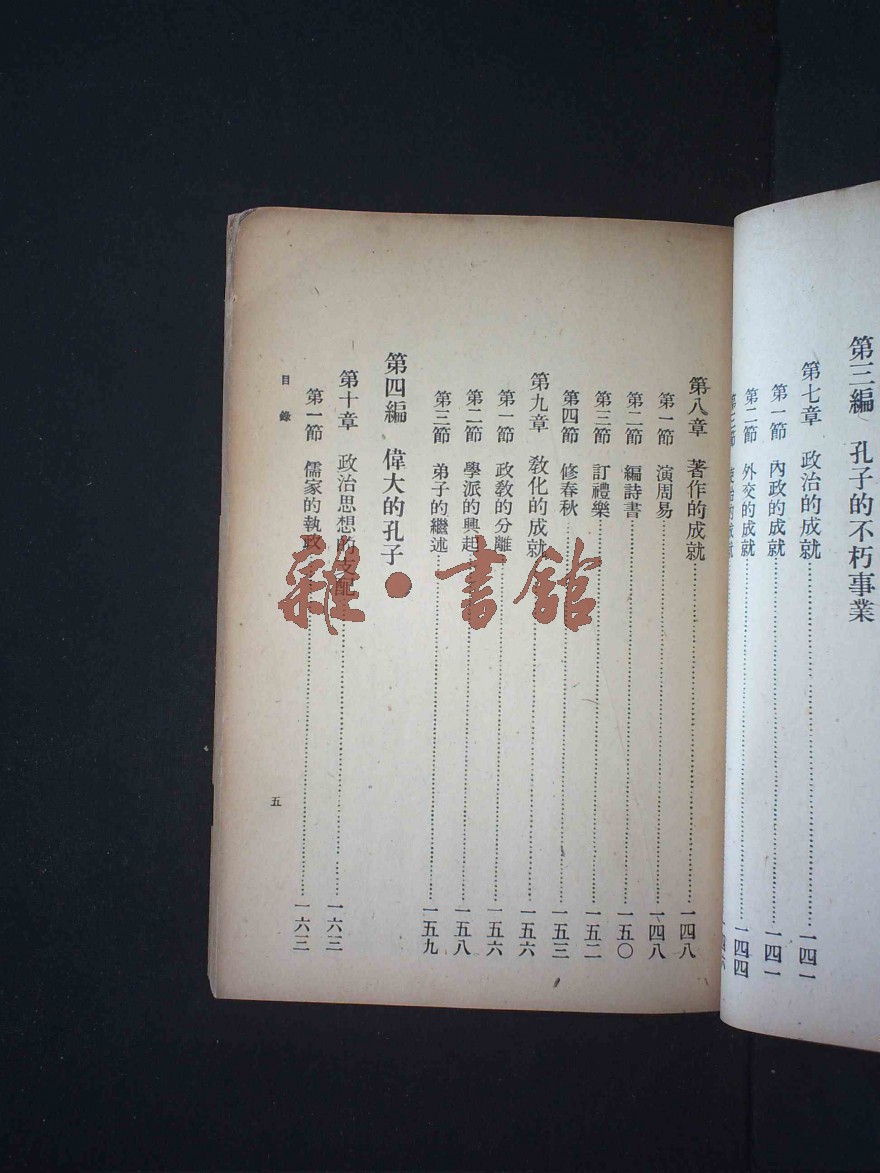 第三編 孔子的不朽事業
第七章 政治的成就……一四一
第一節 內政的成就……一四一
第二節 外交的成就……一四四
第八章 著作的成就……一四八
第一節 演周易……一四八
第二節 編詩書……一五〇
第三節 訂禮樂……一五二
第四節 修春秋……一五三
第九章 教化的成就……一五六
第一節 政教的分離……一五六
第二節 學派的興起……一五八
第三節 弟子的繼述……一五九
第四編 偉大的孔子
第十章 政治思想的支配……一六三
第一節 儒家的執政……一六三
目錄
五
雜·書館